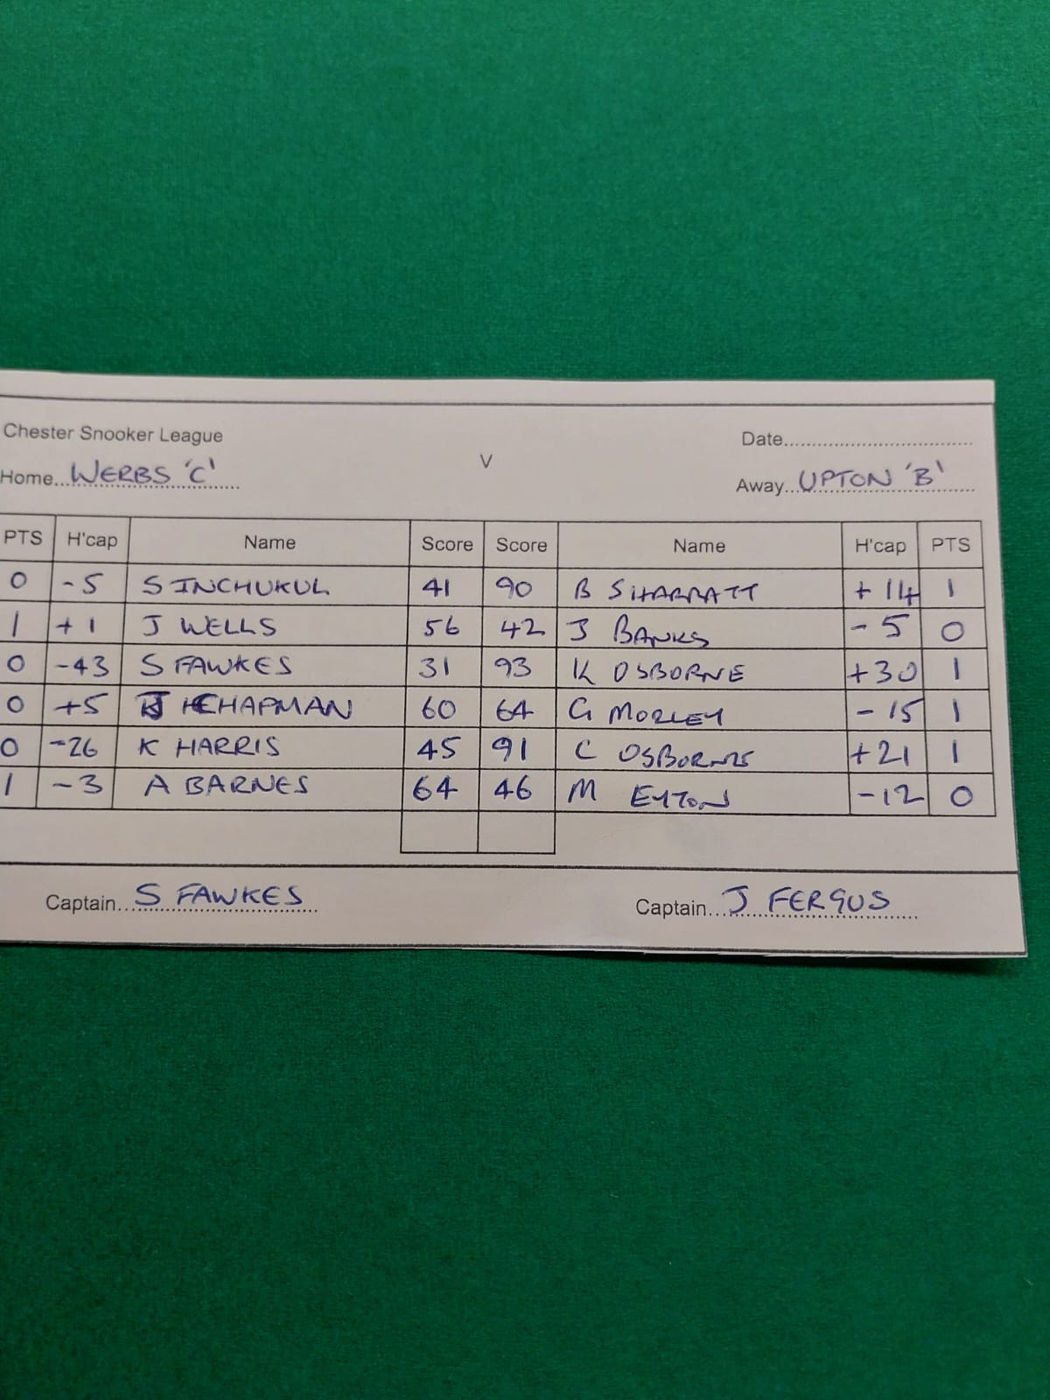 Chester Snooker League
Date
Home WERBS 'C' V Away UPTON 'B'
PTS H'cap Name Score Score Name H'cap PTS
0 -5 S INCHUKUL 41 90 B SHARRATT +14 1
1 +1 J WELLS 56 42 J BANKS -5 0
0 -43 S FAWKES 31 93 K OSBORNE +30 1
0 +5 CHAPMAN 60 64 G MORLEY -15 1
0 -26 K HARRIS 45 91 C OSBORNE +21 1
1 -3 A BARNES 64 46 M EYTON -12 0
Captain S FAWKES Captain J FERGUS